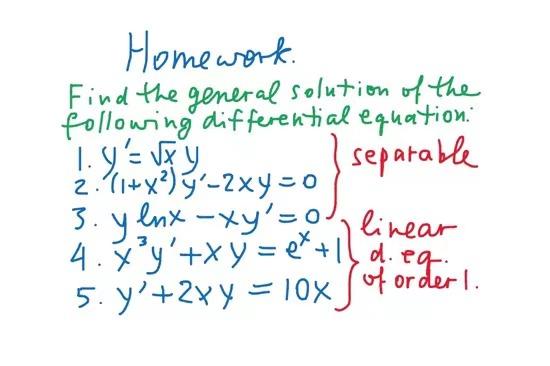 Homework.
Find the general solution of the
following differential equation:
1. y' = √x y
2. (1+x²) y' - 2xy = 0
3. y lnx - xy' = 0
separable
4. x³y' + xy = eˣ + 1
5. y' + 2xy = 10x
linear
d. eq.
of order 1.